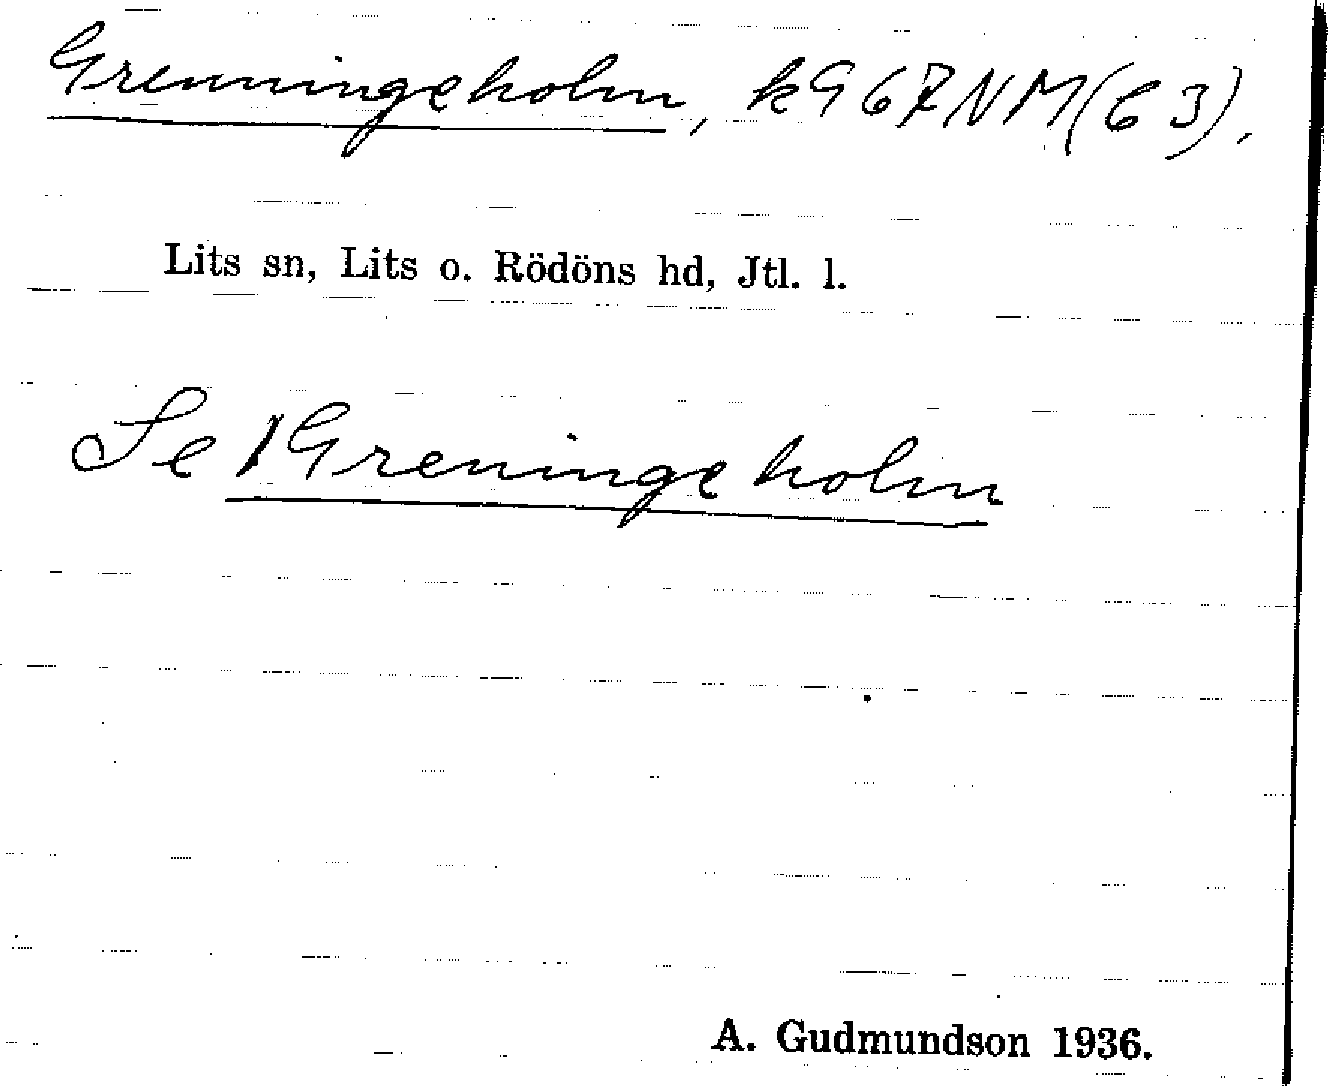 Grenningeholm, k967NM(63).
Lits sn, Lits o. Rödöns hd, Jtl. l.
Se Greningeholm
A. Gudmundson 1936.